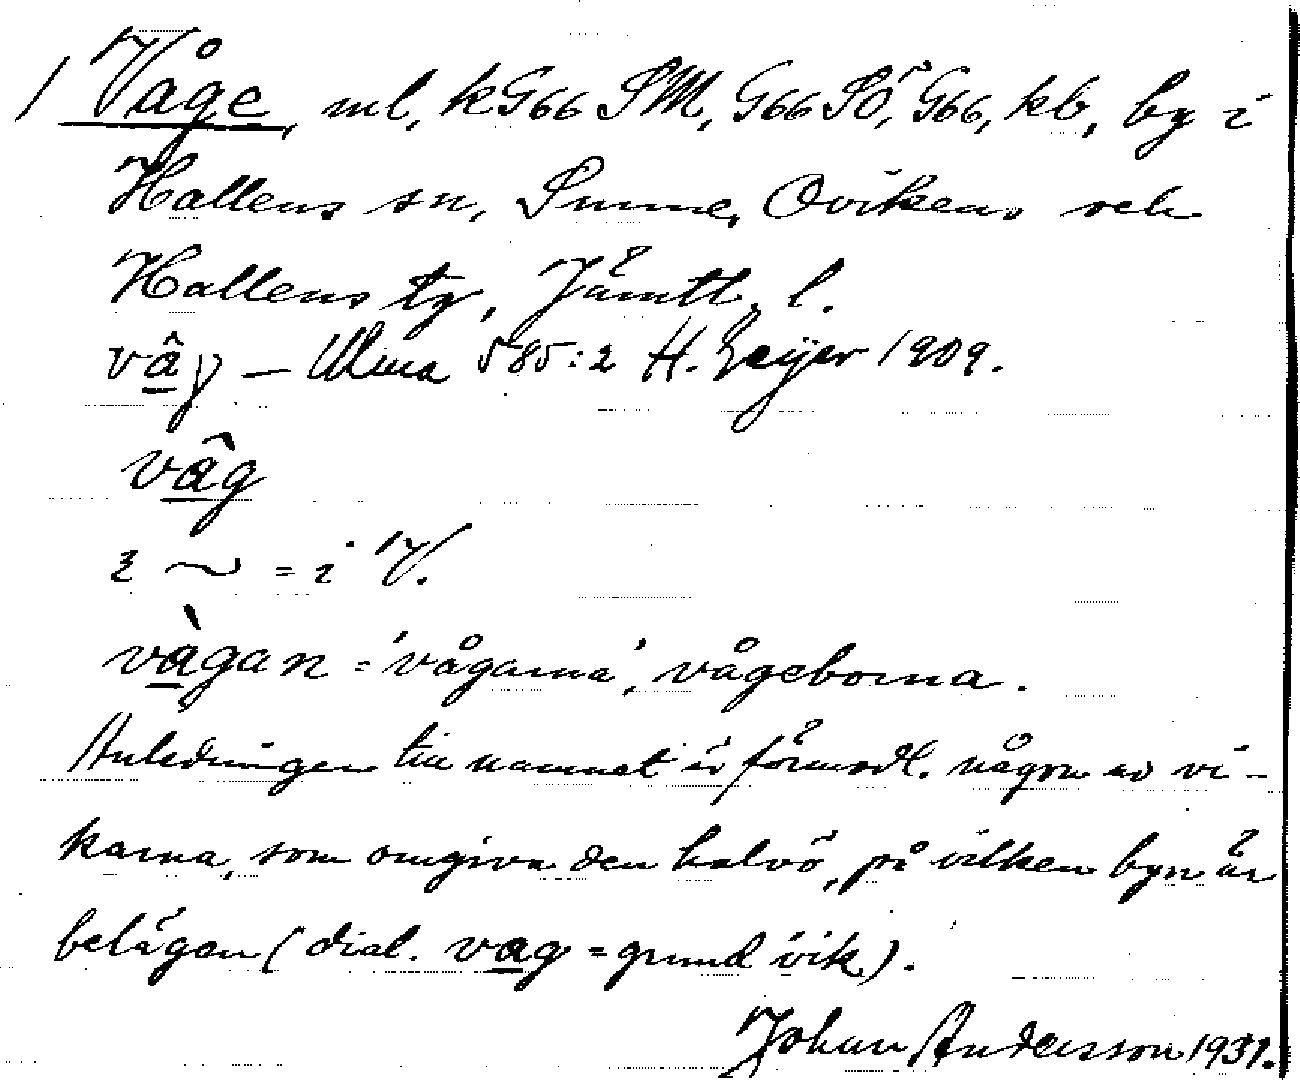 / Våge, ml, kG66 SM, G66 SÖ, G66, kb, by i
Hallens sn, Sunne, Ovikens och
Hallens tg, Jämtl. l.
vâγ — Ulma 585:2 H. Geijer 1909.
vâg
i ~ = i V.
vàgan = 'vågarna', vågeborna.
Anledningen till namnet är förmodl. någon av vi-
karna, som omgiva den halvö, på vilken byn är
belägen (dial. vag = grund vik).
Johan Andersson 1931.